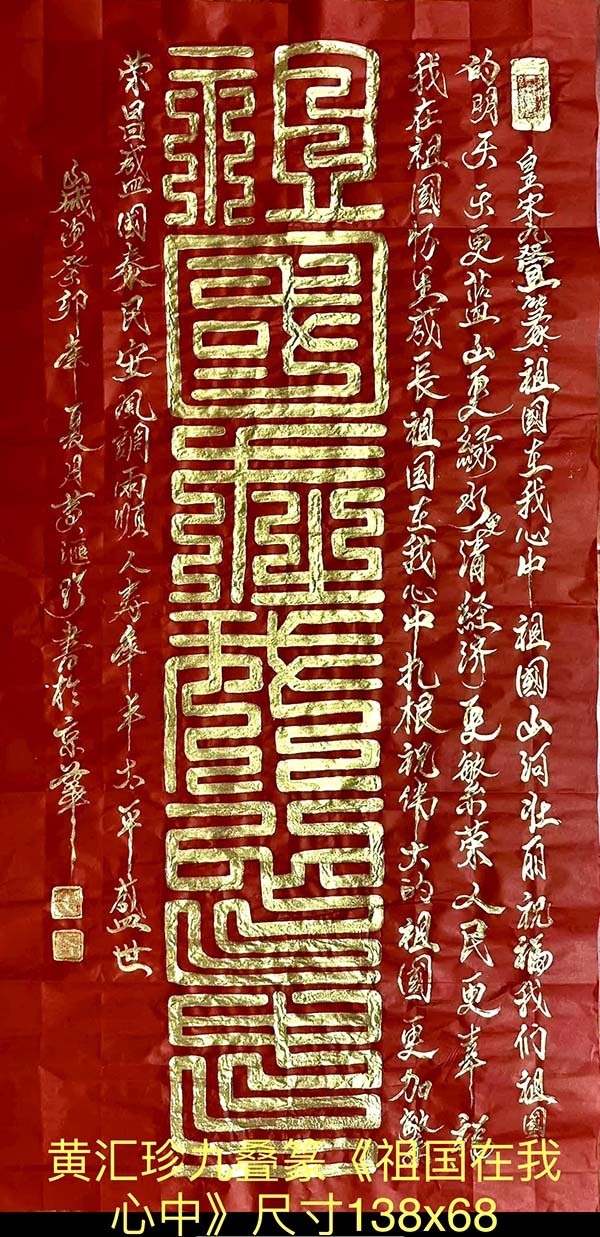 皇宋九疊篆祖國在我心中祖國山河壮丽祝福我们祖国
的明天天更蓝山更緑水更清經济更繁荣人民更幸福
我在祖國怀里成長祖国在我心中扎根祝伟大的祖国更加繁
祖國在我心中
荣昌盛国泰民安风調雨順人寿年丰太平盛世
歲癸卯年夏月黄滙珍書於京華
黄汇珍九叠篆《祖国在我
心中》尺寸138x68